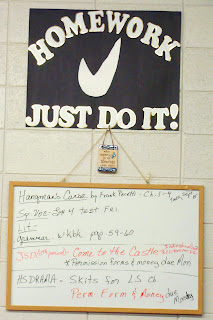 HOMEWORK
JUST DO IT!
Hangman's Curse by Frank Peretti - Ch. 1-4
Sp. Voc - Lsn 4 test Fri
Lit -
Grammar wkbk pag 59-60
JSD Come to the Castle
* Permission forms & money due Mon
HSDRAMA - Skits for LS ch
Perm Form & Money due Monday